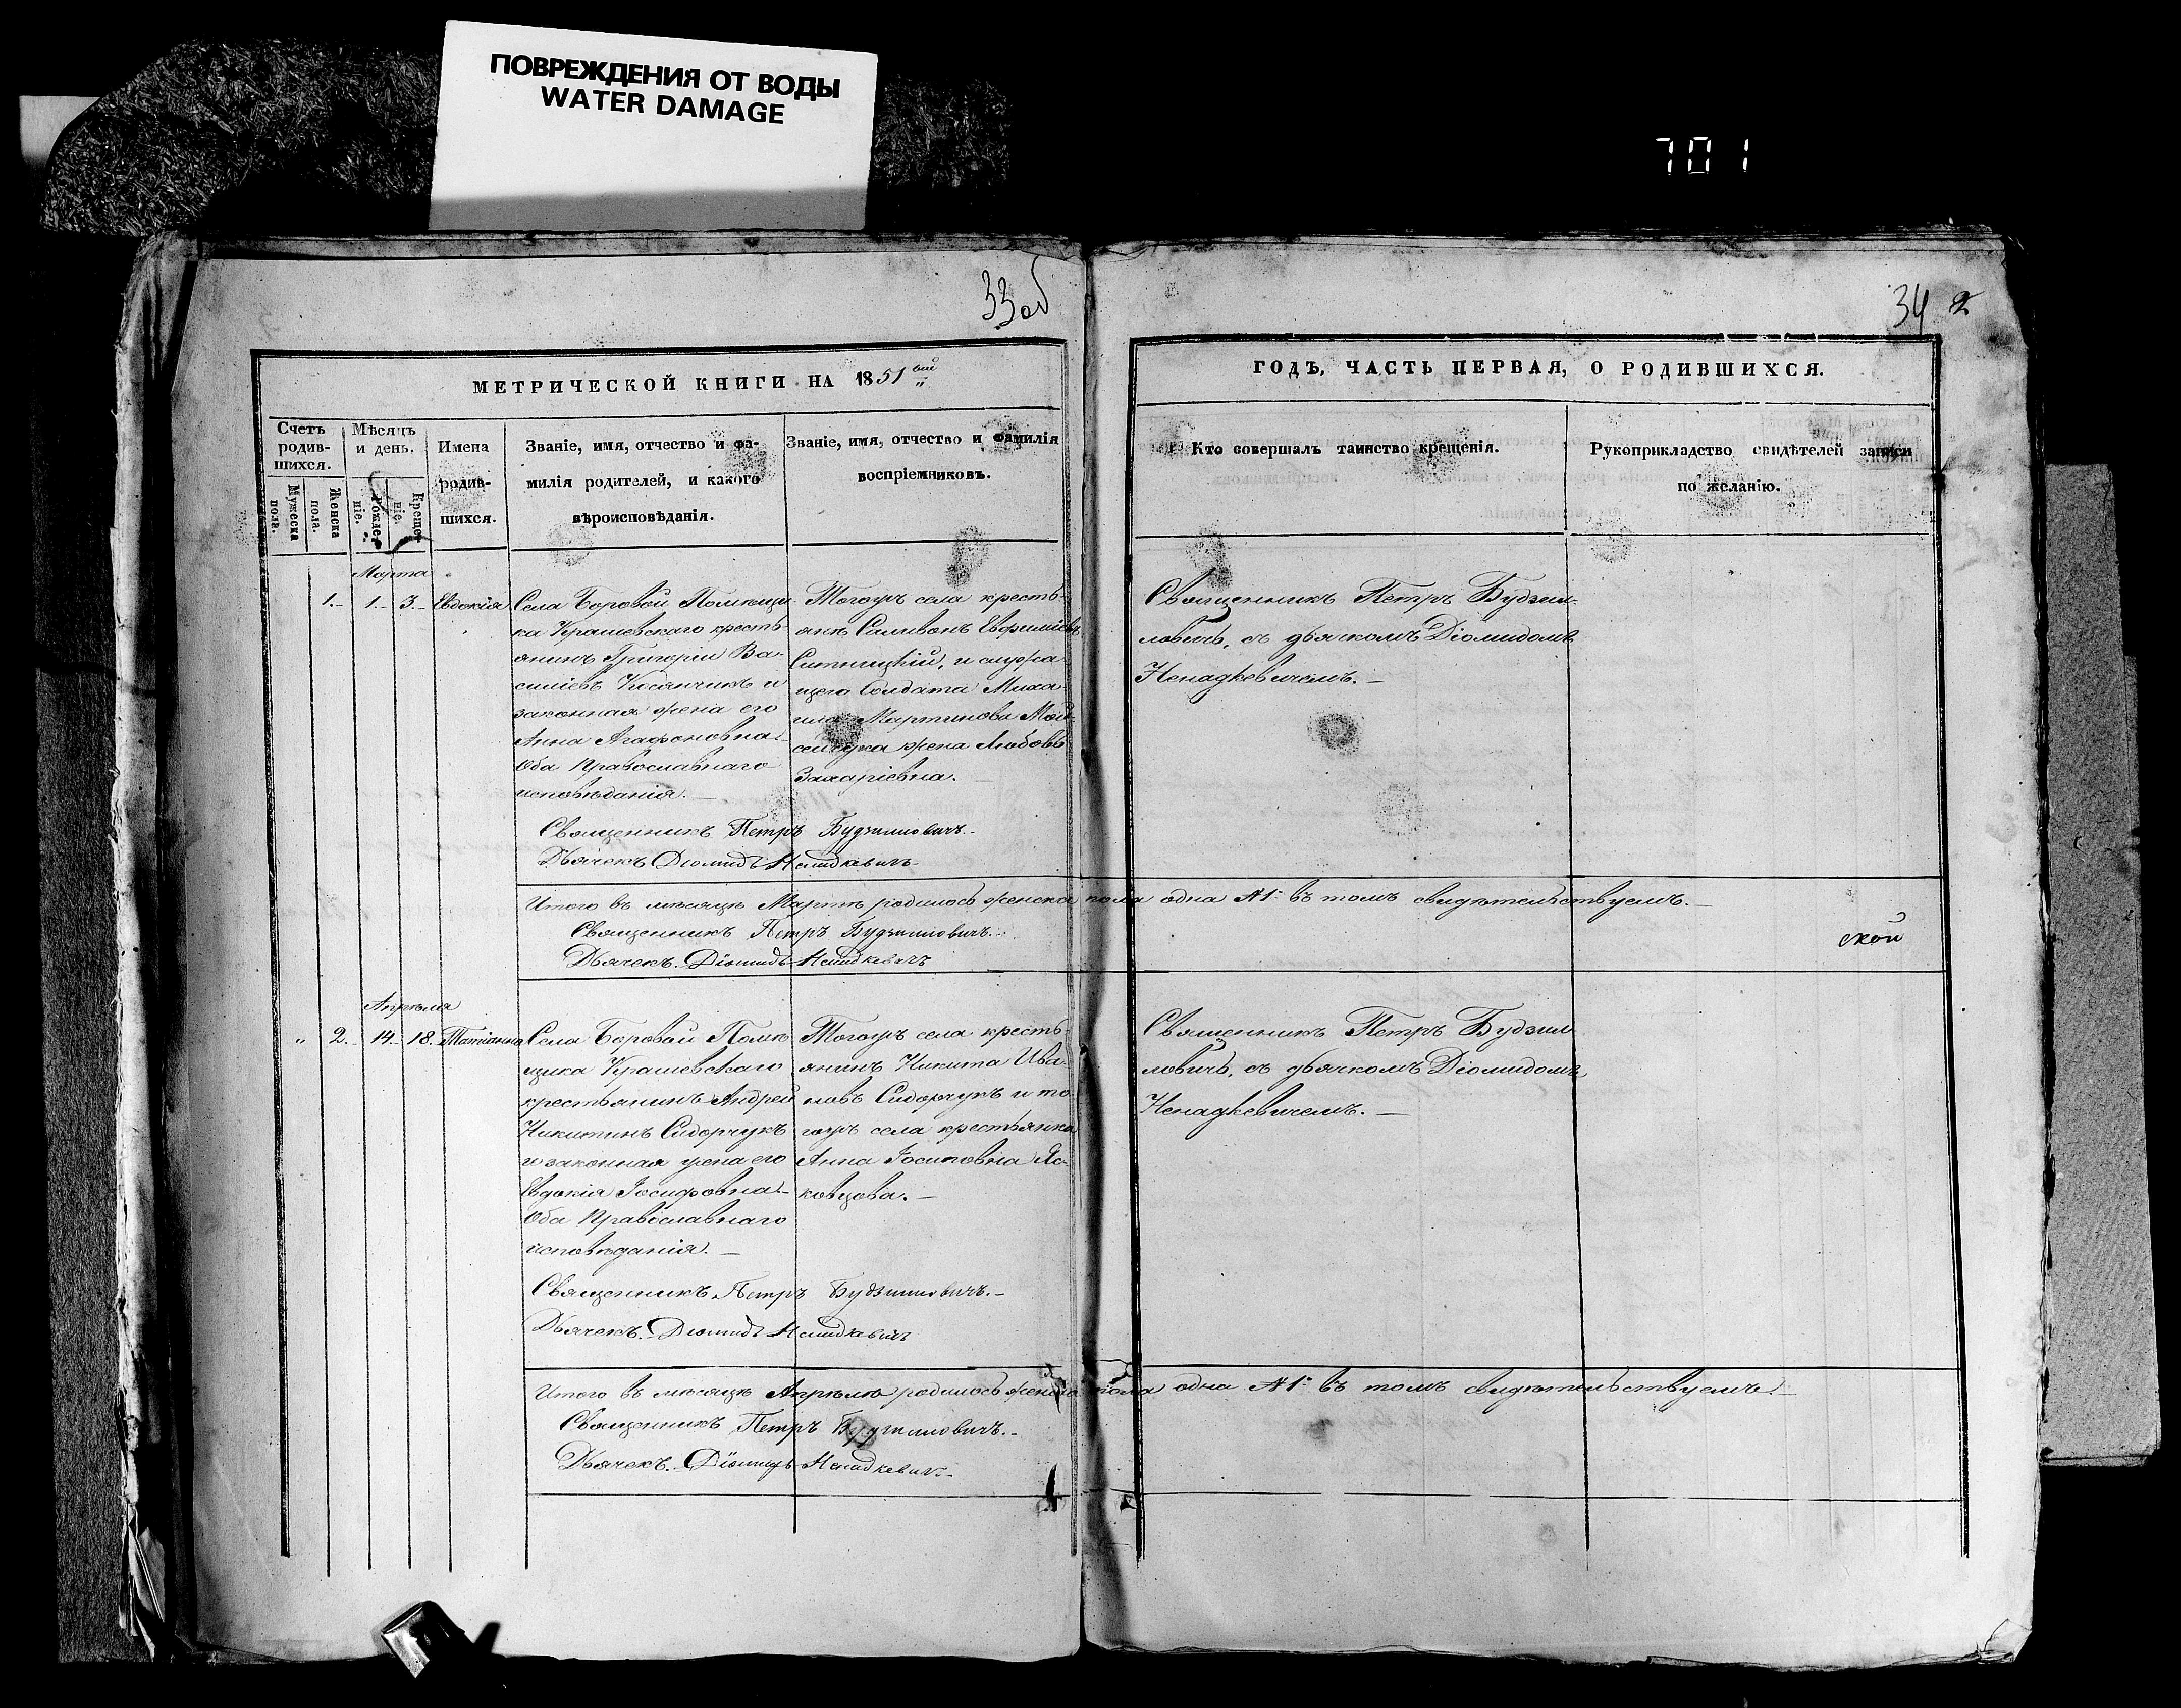 ПОВРЕЖДЕНИЯ ОТ ВОДЫ
WATER DAMAGE
701
33 об
34 2
МЕТРИЧЕСКОЙ КНИГИ НА 1851ый
Счетъ родив-шихся.
Мужеска пола.
Женска пола.
Мѣсяцъ и день.
Рожде-ніе.
Креще-ніе.
Имена родив-шихся.
Званіе, имя, отчество и фа-
милія родителей, и какого
вѣроисповѣданія.
Званіе, имя, отчество и фамилія
воспріемниковъ.
Марта
1. 1. 3. Евдокія
Села Боровой Помѣщи
ка Крашевскаго кресть-
янинъ Григорій Ва-
силіевъ Косянчикъ и
законная жена его
Анна Агафоновна
Оба Православнаго
исповѣданія.
Тогожъ села кресть-
янъ Саливонъ Евфиміевъ
Ситницкій, и служа-
щего Солдата Миха-
ила Мартинова Мои-
сейчука жена Любовь
Захаріевна.
Священникъ Петръ Будзиловичъ.
Дьячекъ Діомидъ Ненадкевичъ
Итого въ мѣсяцѣ Мартѣ родилось женска пола одна №1 въ томъ свидѣтельствуемъ.
Священникъ Петръ Будзиловичъ.
Дьячекъ Діомидъ Ненадкевичъ
Апрѣля
" 2. 14. 18. Татіанна
Села Боровой Помѣ
щика Крашевскаго
крестьянинъ Андрей
Никитинъ Сидорчукъ
и законная жена его
Евдокія Іосифовна
Оба Православнаго
исповѣданія.
Тогожъ села кресть-
янинъ Никита Ива-
новъ Сидорчукъ и то
гожъ села крестьянка
Анна Іосиповна Яс-
ковцова.
Священникъ Петръ Будзиловичъ.
Дьячекъ. Діомидъ Ненадкевичъ
Итого въ мѣсяцѣ Апрѣлѣ родилось женска пола одна №1 въ томъ свидѣтельствуемъ.
Священникъ Петръ Будзиловичъ.
Дьячекъ. Діомидъ Ненадкевичъ
ГОДЪ, ЧАСТЬ ПЕРВАЯ, О РОДИВШИХСЯ.
Кто совершалъ таинство крещенія.
Рукоприкладство свидѣтелей записи
по желанію.
Священникъ Петръ Будзил-
ловичъ, съ дьячкомъ Діомидомъ
Ненадкевичемъ.
ской
Священникъ Петръ Будзил
ловичъ, съ дьячкомъ Діомидомъ
Ненадкевичемъ.